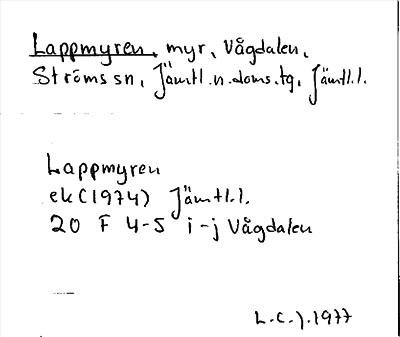 Lappmyren, myr, Vågdalen,
Ströms sn, Jämtl.n.doms.tg, Jämtl.l.
Lappmyren
ek(1974) Jämtl.l.
20 F 4-5 i-j Vågdalen
L.C.J.1977